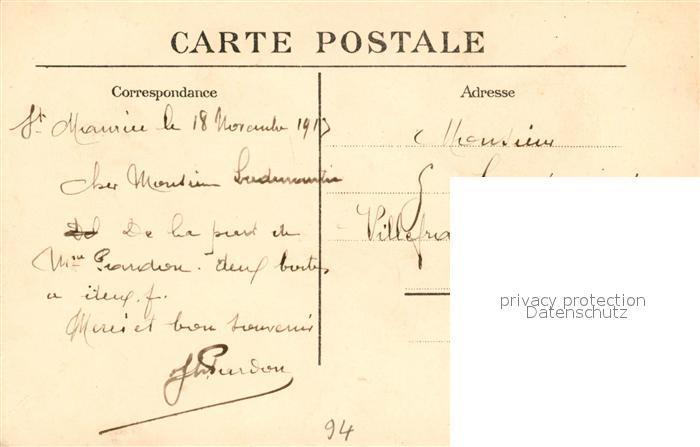 CARTE POSTALE
Correspondance
St Maurice le 18 Novembre 1913
cher Monsieur
De la part de
Mme deux bortes
a deux f.
Merci et bon souvenir
Adresse
Monsieur
Villefra
privacy protection
Datenschutz
94